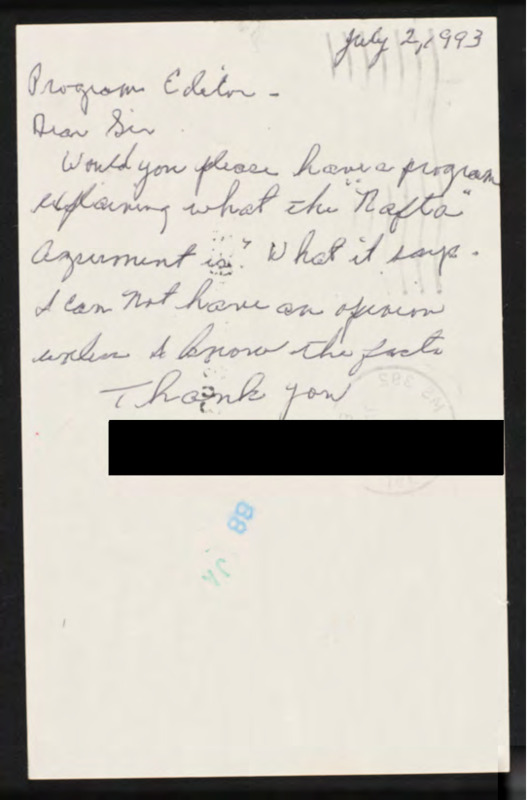 July 2, 1993
Program Editor -
Dear Sir
Would you please have a program
explaining what the "Nafta"
Agreement is" What it says.
I can not have an opinion
unless I know the facts
Thank you
88
JA